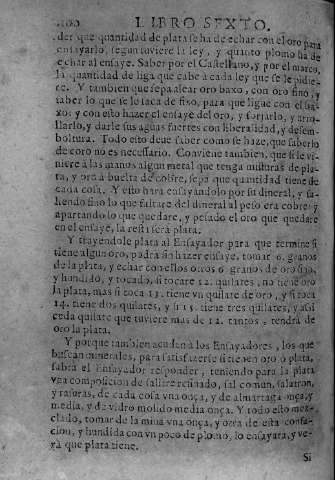 LIBRO SEXTO.
der que quantidad de plata se ha de echar con el oro para
ensayarlo, segun tuviere la ley, y quanto plomo ha de
echar al ensaye. Saber por el Castellano, y por el marco,
la quantidad de liga que cabe à cada ley que se le pidie-
re. Y tambien que sepa alear oro baxo, con oro fino, y
saber lo que se le saca de fino, para que ligue con el ba-
xo: y con esto hazer el ensaye del oro, y forjarlo, y arro-
llarlo, y darle sus aguas fuertes con liberalidad, y desem-
boltura. Todo esto deue saber como se haze, que saberlo
de coro no es necessario. Conviene tambien, que si le vi-
niere a las manos algun metal que tenga mistura de pla-
ta, y oro à buelta de cobre, sepa que quantidad tiene de
cada cosa. Y esto hara ensayandolo por su dineral, y sa-
liendo fino lo que faltare del dineral al peso era cobre: y
apartando lo que quedare, y pesado el oro que quedare
en el ensaye, la resta sera plata.
Y trayendole plata al Ensayador para que termine si
tiene algun oro, podra sin hazer ensaye, tomar 6. granos
de la plata, y echar con ellos otros 6 granos de oro fijo,
y hundido, y tocado, si tocare 12. quilates, no tiene oro
la plata, mas si toca 13. tiene vn quilate de oro, y si toca
14. tiene dos quilates, y si 15. tiene tres quilates, y assi
cada quilate que tuviere mas de 12. tantos tendrá de
oro la plata.
Y porque tambien acuden à los Ensayadores, los que
buscan minerales, para satisfazerse si tienen oro ò plata,
sabra el Ensayador responder, teniendo para la plata
vna composicion de salitre refinado, sal comun, salatron,
y rasuras, de cada cosa vna onça, y de almartaga onça, y
media, y de vidro molido media onça. Y todo esto mez-
clado, tomar de la mina vna onça, y otra de esta confa-
cion, y hundida con vn poco de plomo, lo ensayara, y ve-
rà que plata tiene.
Si